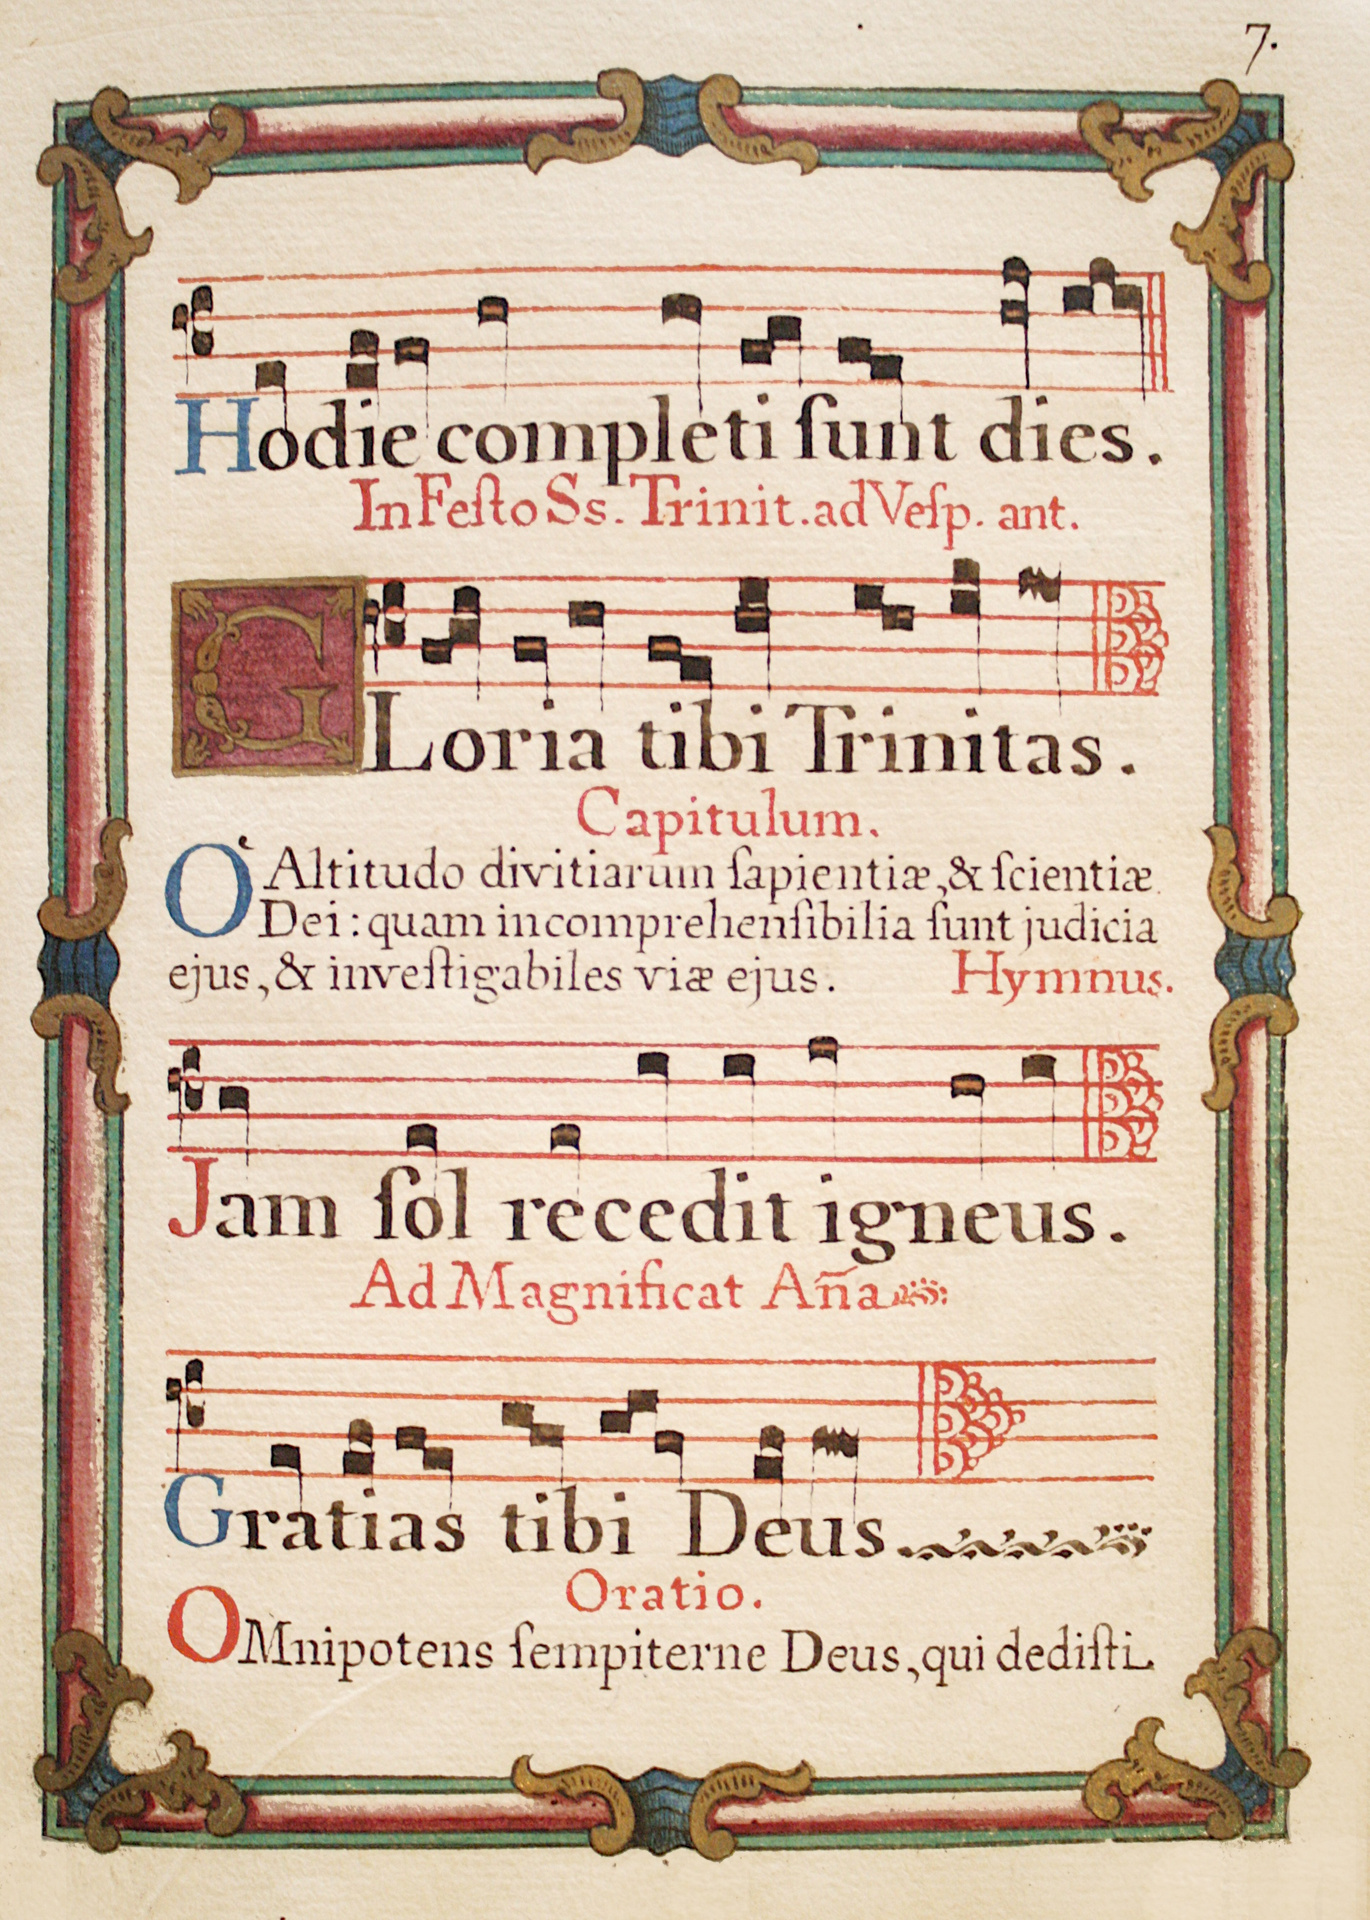 7.
Hodie completi ſunt dies.
In Feſto Ss. Trinit. ad Veſp. ant.
GLoria tibi Trinitas.
Capitulum.
O Altitudo divitiarum ſapientiæ, & ſcientiæ
Dei: quam incomprehenſibilia ſunt judicia
ejus, & inveſtigabiles viæ ejus. Hymnus.
Jam ſol recedit igneus.
Ad Magnificat Aña
Gratias tibi Deus.
Oratio.
OMnipotens ſempiterne Deus, qui dediſti